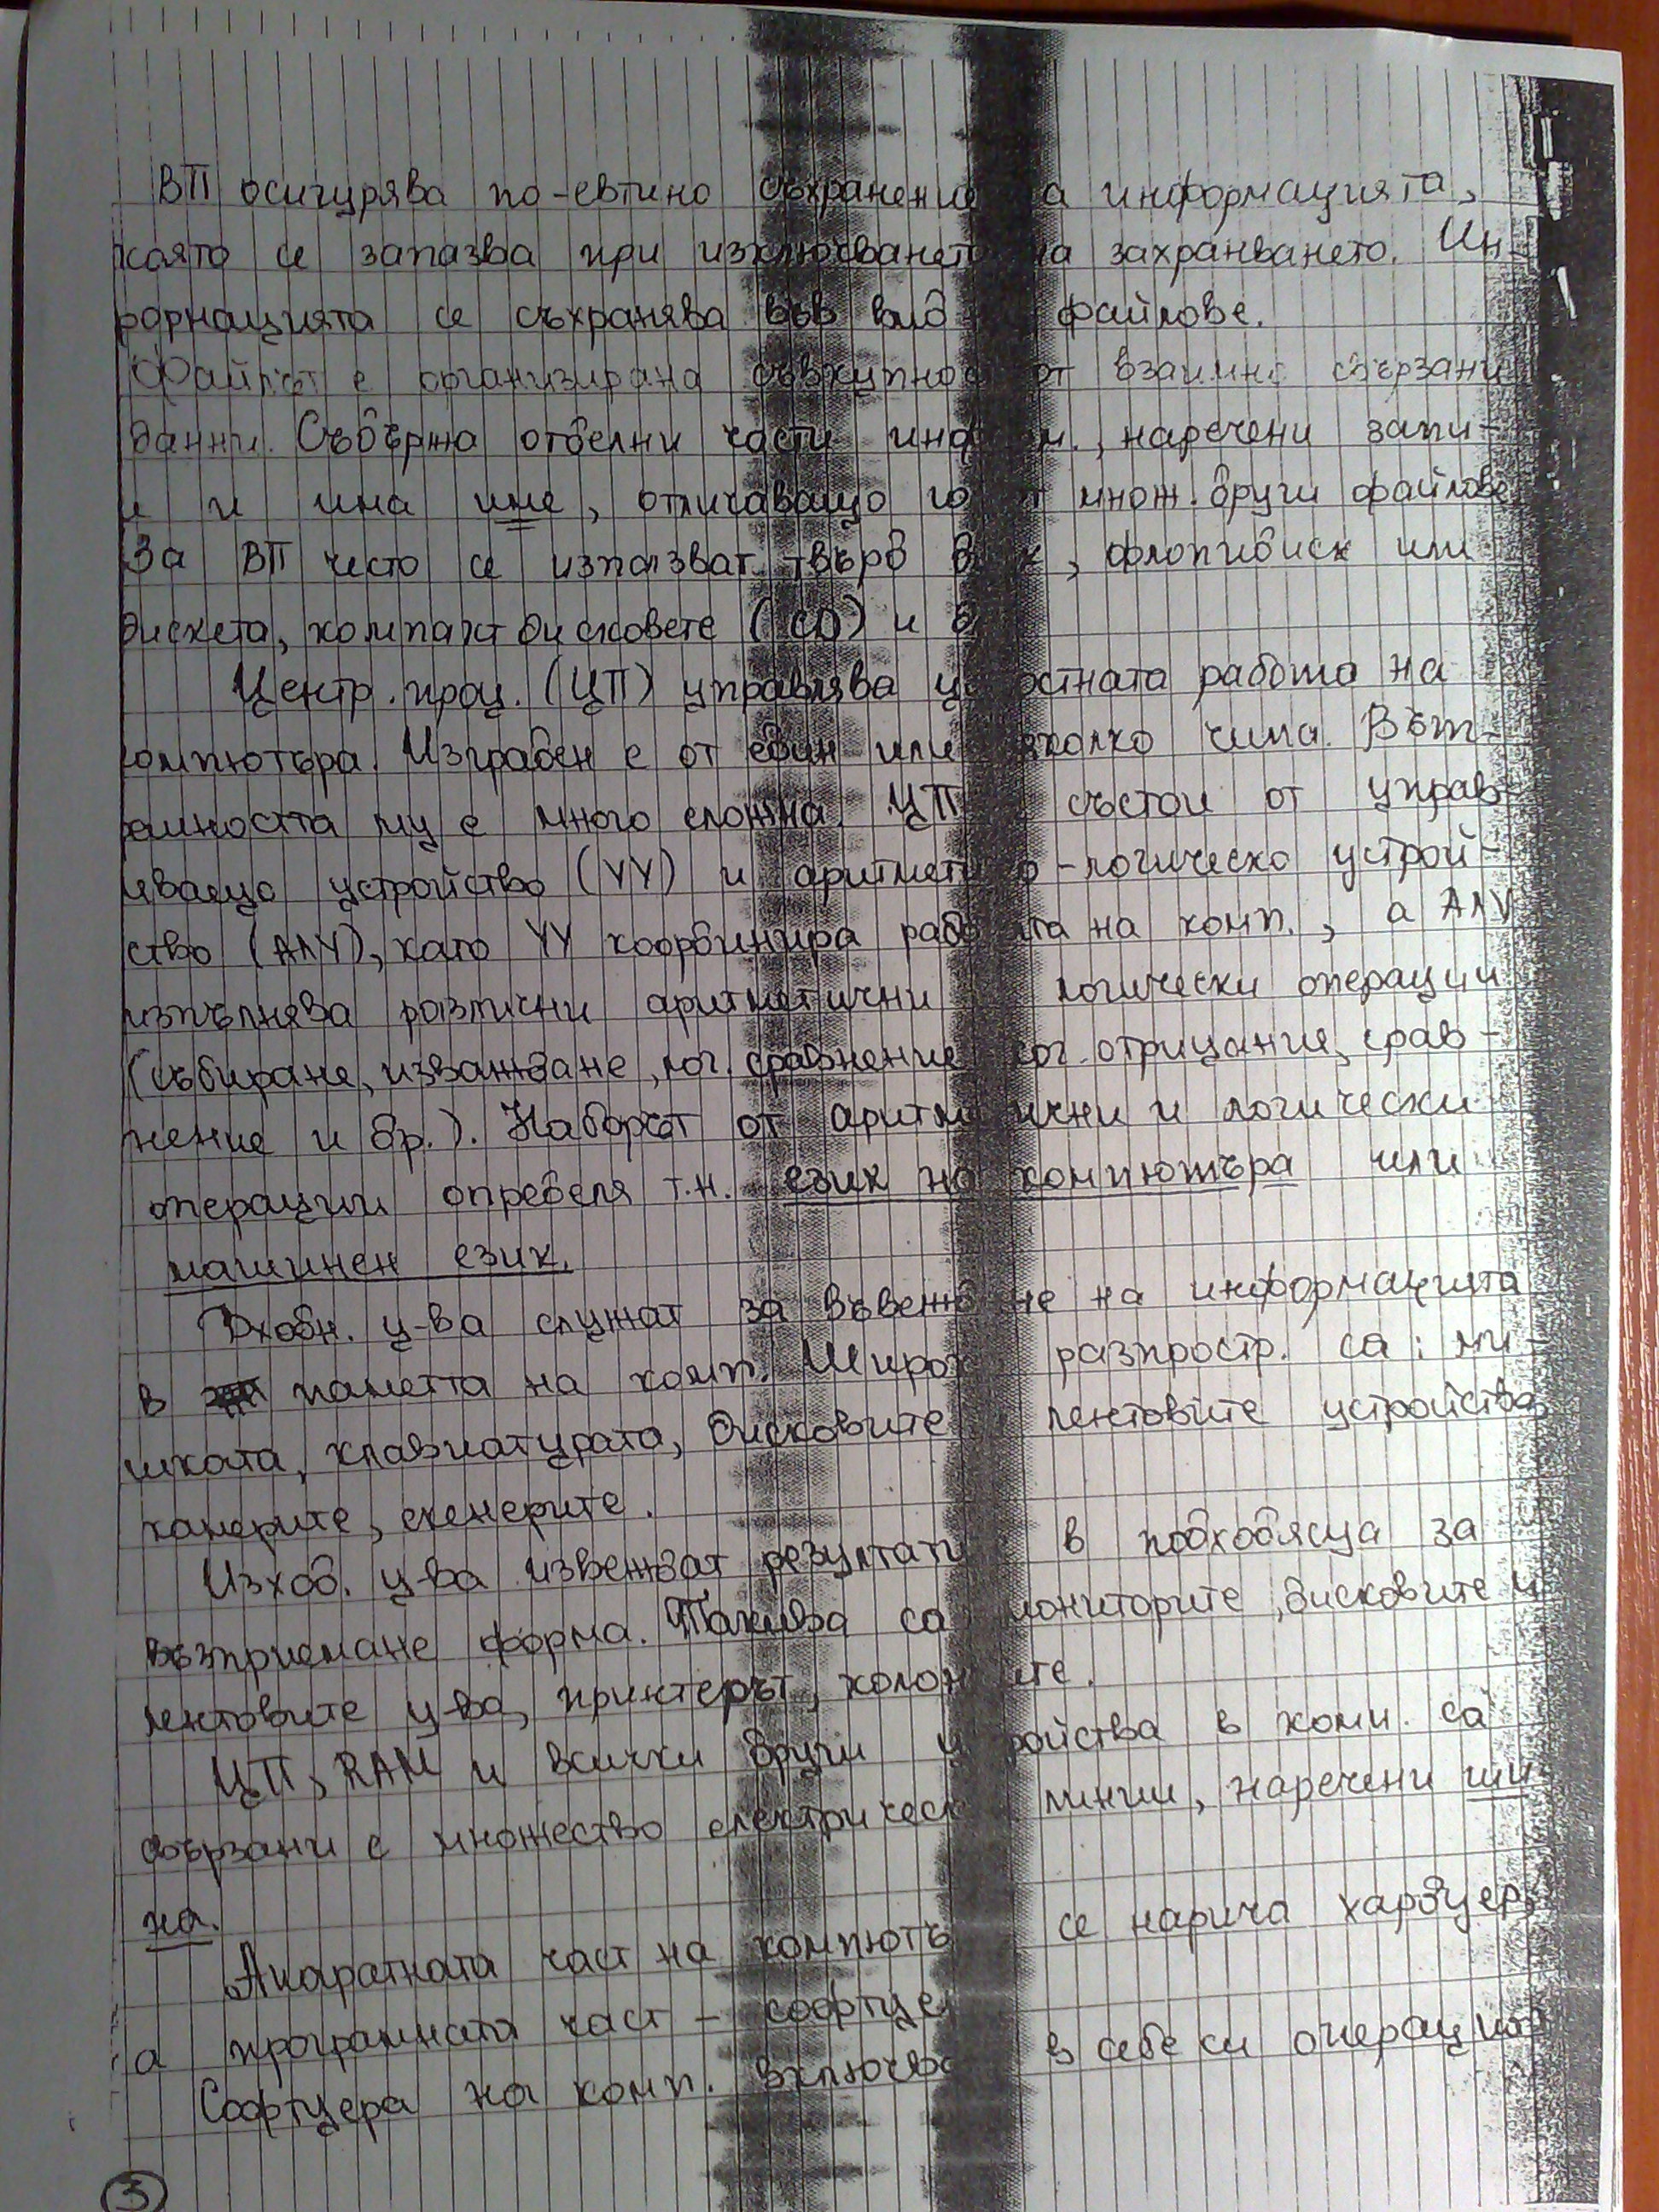 ВП осигурява по-евтино съхранение на информацията,
която се запазва при изключването на захранването. Ин-
формацията се съхранява във вид файлове.
Файлът е организирана съвкупност от взаимно свързани
данни. Съдържа отделни части информ., наречени запи-
и има име, отличаващо го от множ. други файлове
За ВП често се използват твърд диск, флопидиск или
дискета, компакт дисковете (CD) и
Центр. проц. (ЦП) управлява цялостната работа на
компютъра. Изграден е от един или няколко чипа. Вът-
решността му е много сложна. ЦП състои от управ-
ляващо устройство (УУ) и аритметико-логическо устрой-
ство (АЛУ), като УУ координира работата на комп., а АЛУ
изпълнява различни аритметични логически операции
(събиране, изваждане, лог. сравнение, лог. отрицание, срав-
нение и др.). Наборът от аритметични и логически
операции определя т.н. език на компютъра или
машинен език.
Входн. у-ва служат за въвеждане на информацията
в паметта на комп. Широко разпростр. са: ми-
шката, клавиатурата, дисковите лентовите устройства,
камерите, скенерите.
Изход. у-ва извеждат резултати в подходяща за
възприемане форма. Такива са мониторите, дисковите и
лентовите у-ва, принтерът, колоните.
ЦП, RAM и всички други устройства в комп. са
свързани с множество електрически линии, наречени ши-
на.
Апаратната част на компютъра се нарича хардуер,
а програмната част - софтуер
Софтуера на комп. включва в себе си операцио
3